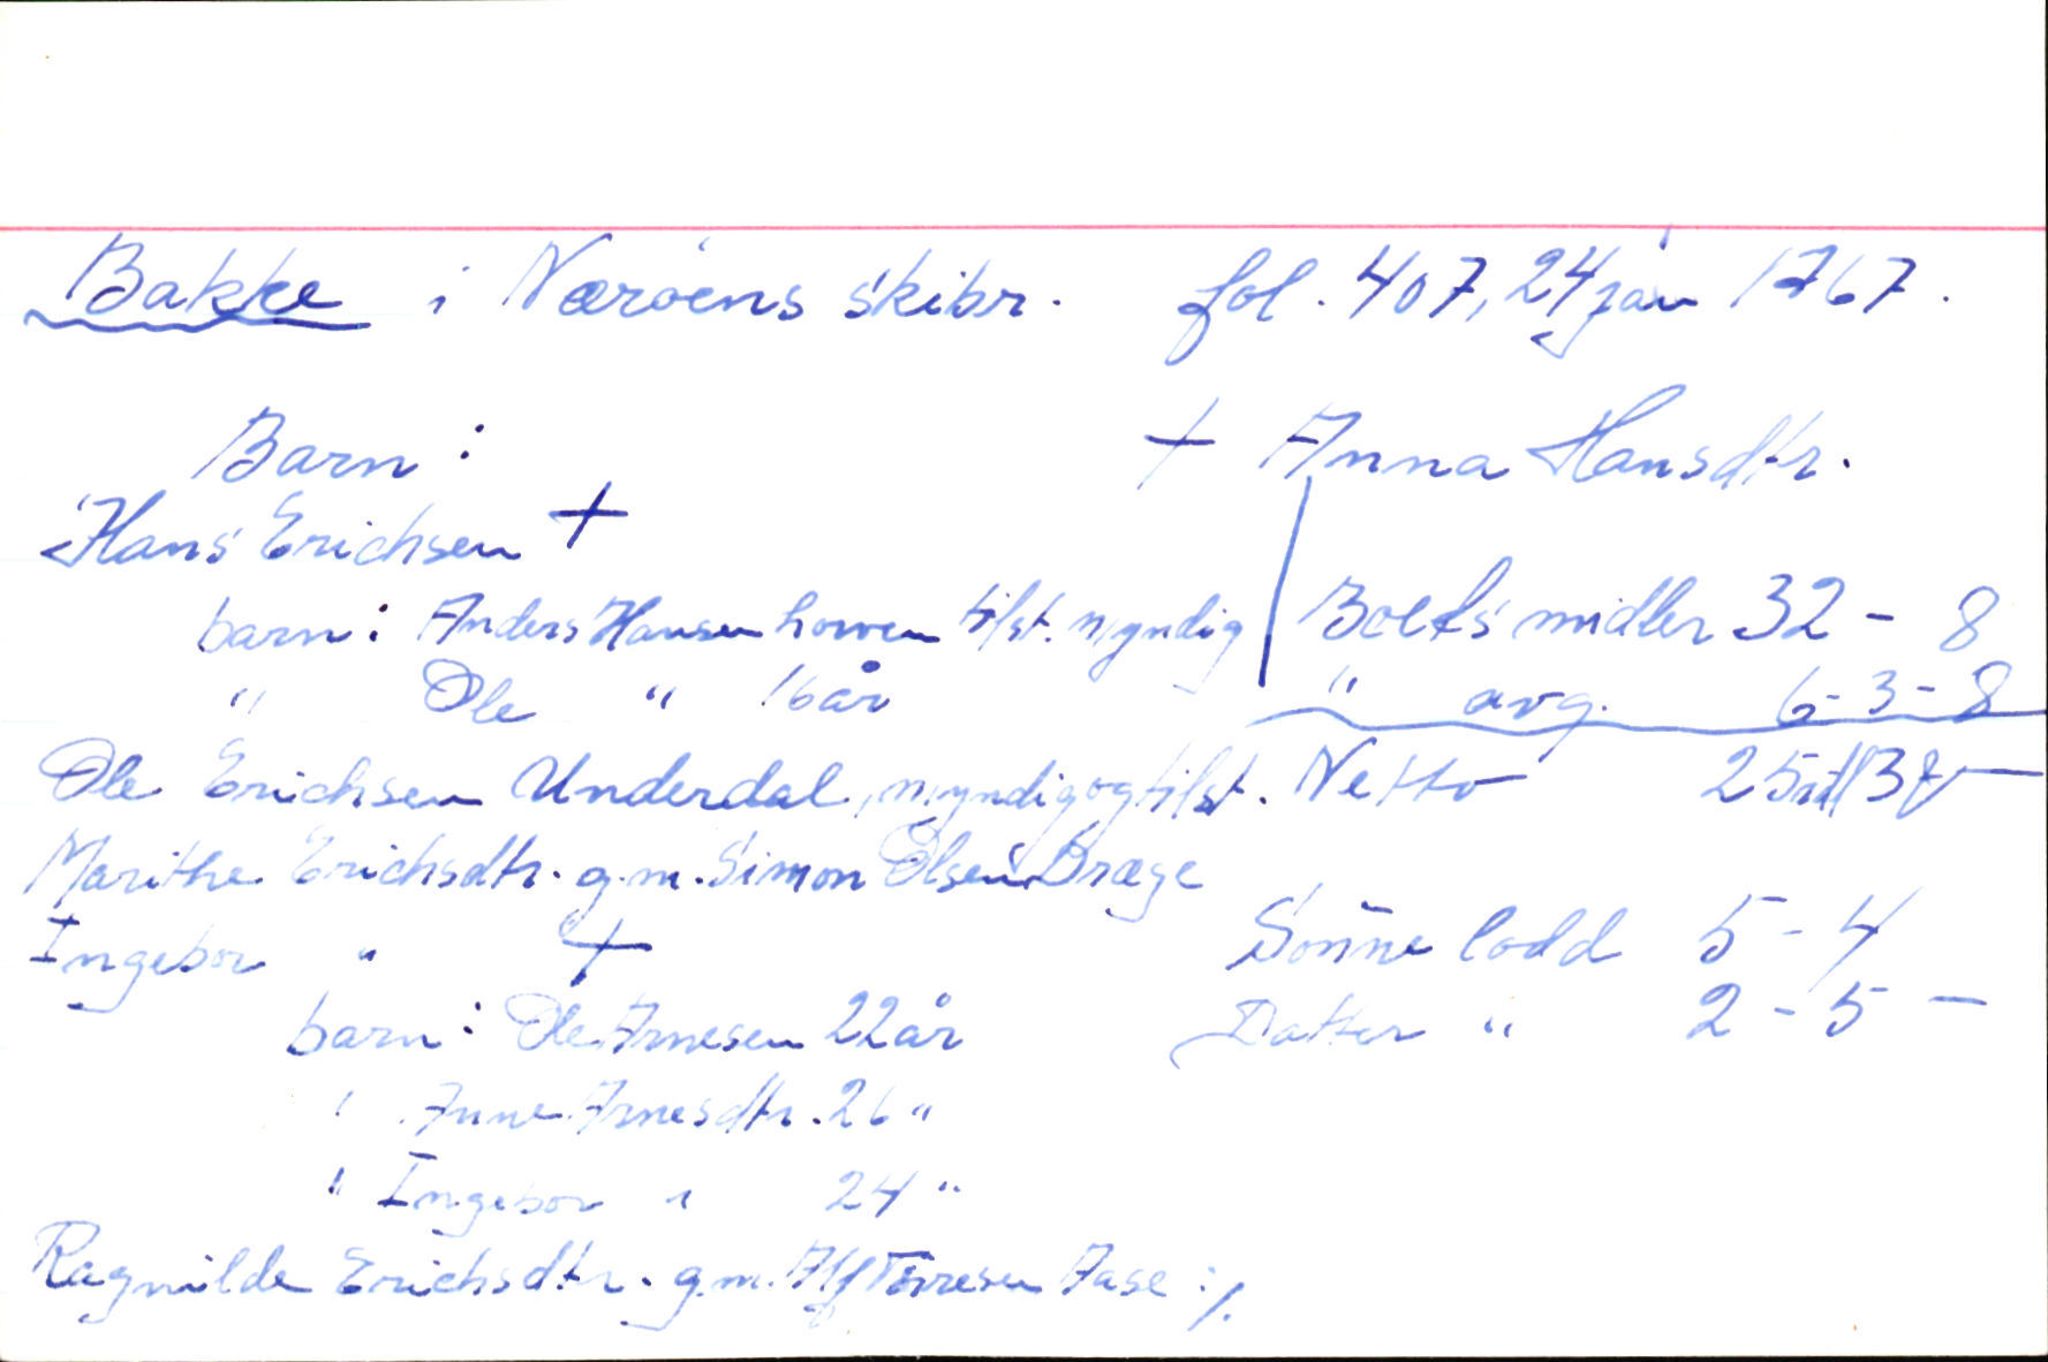 Bakke i Nærøens skibr. fol. 407, 24 jan 1767.
Barn: + Anna Hansdtr.
Hans Erichsen +
barn: Anders Hansen howen tilst. myndig Boets midler 32 - 8
" Ole " 16 år " avg. 6-3-8
Ole Erichsen Underdal, myndig og tilst. Netto 25 rdl 3
Marithe Erichsdtr. g.m. Simon Olsen Dræge
Ingebor " + Sønne lodd 5 - 4
barn: Ole Arnesen 22 år Datter " 2 - 5 -
" Anne Arnesdtr. 26 "
" Ingebor " 24 "
Ragnilde Erichsdtr. g.m. Alf Tørresen Aase :/.